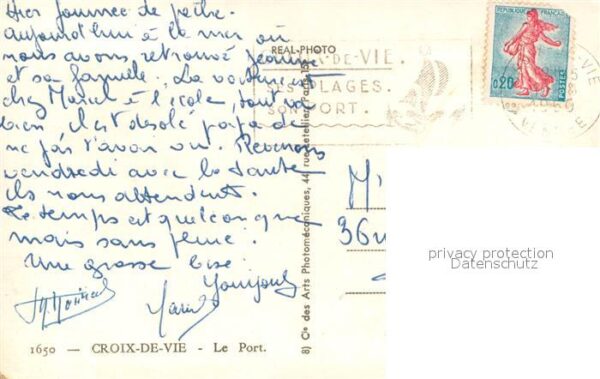 Hier journée de pêche
aujourd'hui à la mer où
nous avons retrouvé Jeanine
et sa famille. La voiture est
chez Marcel à l'école, tout va
bien il est désolé papa de
ne pas t'avoir vu. Revenons
vendredi avec la tante
ils nous attendent.
Le temps est quelconque
mais sans pluie.
Une grosse bise
1650 — CROIX-DE-VIE - Le Port.
REAL-PHOTO
8) Cie des Arts Photomécaniques, 44, rue Letellier, Paris-15e
-DE-VIE.
SES PLAGES.
SON PORT.
REPUBLIQUE FRANÇAISE
0,20
POSTES
M
36
privacy protection
Datenschutz